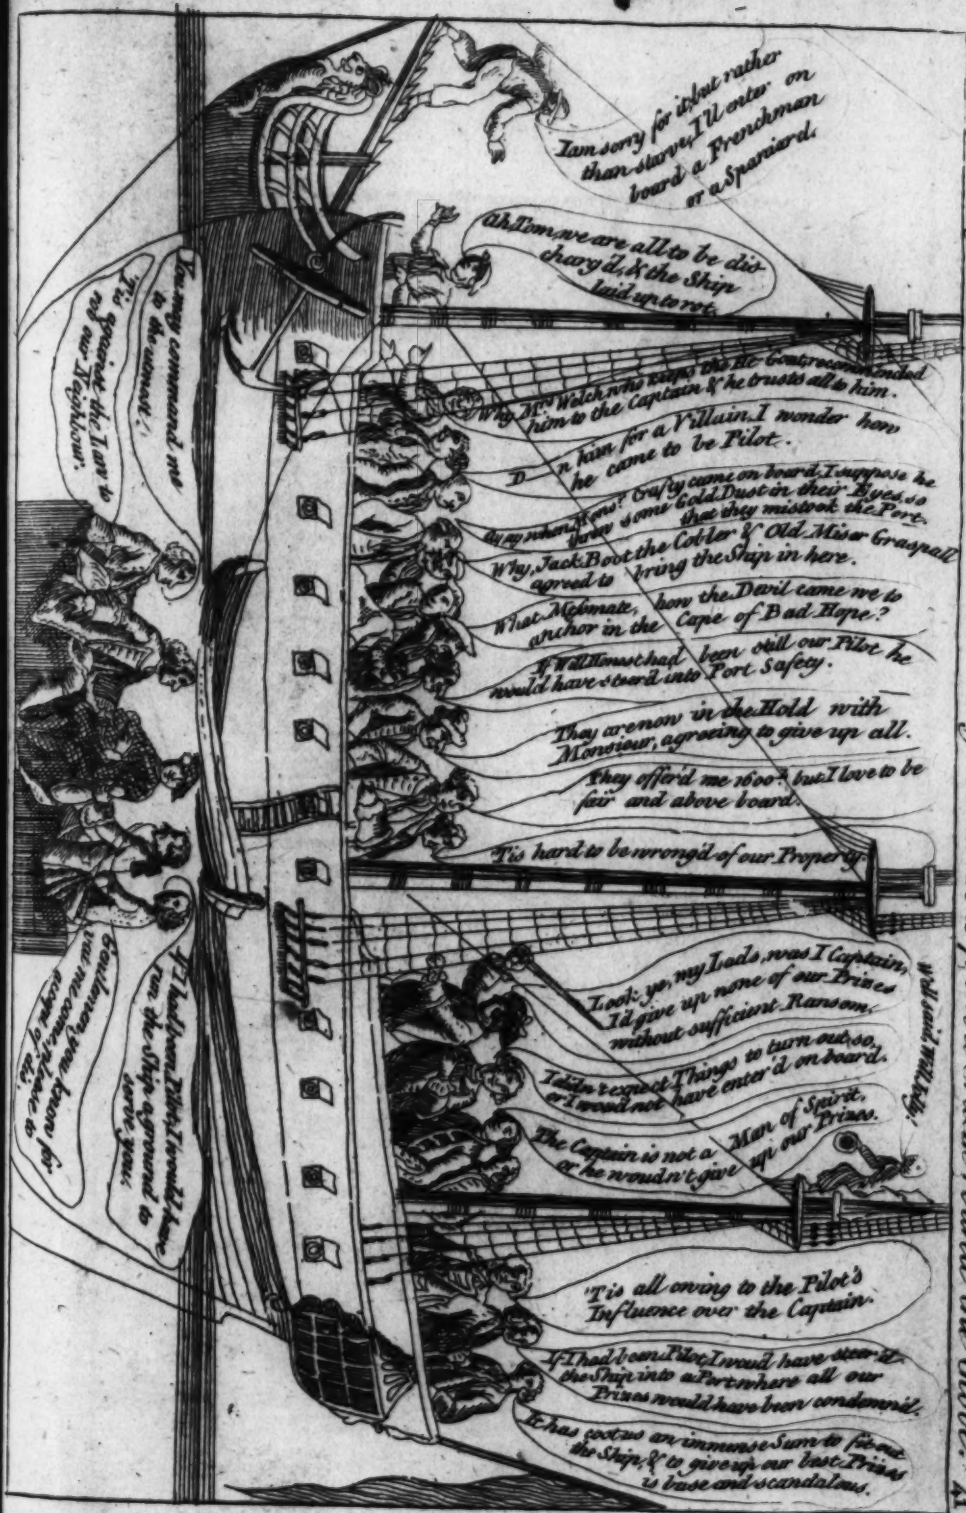 I am sorry for it, but rather
than starve, I'll enter on
board a Frenchman
or a Spaniard.
Ah Tom we are all to be dis
charg'd, & the Ship
laid up to rot.
Why Mrs. Welch who keeps the He Goat, recommended
him to the Captain & he trusts all to him.
D—n him for a Villain, I wonder how
he came to be Pilot.
Ay ay when Mons.r Crafty came on board, I suppose he
threw some Gold Dust in their Eyes, so
that they mistook the Port.
Why, Jack Boot the Cobler & Old Miser Graspall
agreed to bring the Ship in here.
What Messmate, how the Devil came we to
anchor in the Cape of Bad Hope?
If Will Honest had been still our Pilot he
would have steer'd into Port Safety.
They are now in the Hold with
Monsieur, agreeing to give up all.
They offer'd me 1600 but I love to be
fair and above board.
'Tis hard to be wrong'd of our Property.
Look ye, my Lads, was I Captain,
I'd give up none of our Prizes
without sufficient Ransom.
Well said, Will
I didn't expect Things to turn out so,
or I wou'd not have enter'd on board.
The Captain is not a Man of Spirit,
or he woudn't give up our Prizes.
'Tis all owing to the Pilot's
Influence over the Captain.
If I had been Pilot, I wou'd have steer'd
the Ship into a Port where all our
Prizes would have been condemn'd.
It has cost us an immense Sum to fit out
the Ship, & to give up our best Prizes
is base and scandalous.
You may command me
to the utmost.
'Tis against the Law to
rob our Neighbour.
If I had been Pilot, I would have
run the Ship aground to
serve you.
Gentlemen, you know for
wat me come, please to
accept of dis
41